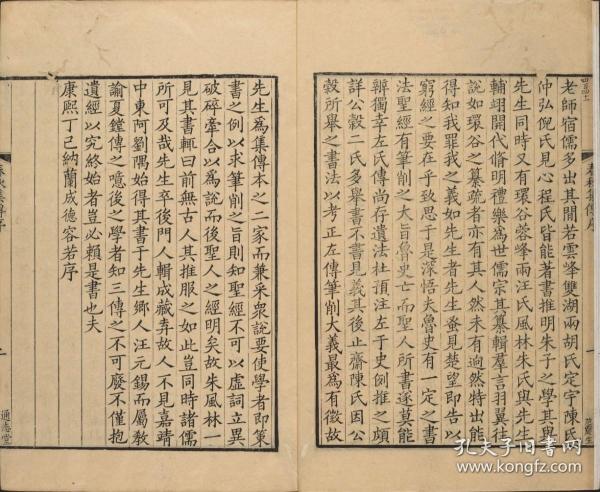 老師宿儒多出其閒若雲峰雙湖兩胡氏定宇陳氏
仲弘倪氏見心程氏皆能著書推明朱子之學其與
先生同時又有環谷蓉峰兩汪氏風林朱氏與先生
輔翊開代脩明禮樂為世儒宗其纂輯羣言羽翼往
說如環谷之纂疏者亦有其人然未有逈然特出能
得知我罪我之義如先生者先生蚤見楚望即告以
窮經之要在乎致思于是深悟夫魯史有一定之書
法聖經有筆削之大旨魯史亡而聖人所書遂莫能
辨獨幸左氏傳尚存遺法杜預注左于史例推之頗
詳公穀二氏多舉書不書見義其後止齋陳氏因公
穀所舉之書法以考正左傳筆削大義最為有徵故
春秋集傳序
先生為集傳本之二家而兼采衆說要使學者即策
書之例以求筆削之旨則知聖經不可以虛詞立異
破碎牽合以為說而後聖人之經明矣故朱風林一
見其書輒曰前無古人其推服之如此豈同時諸儒
所可及哉先生卒後門人輯成藏弆故人不見嘉靖
中東阿劉隅始得其書于先生鄉人汪元錫而屬敎
諭夏鏜傳之噫後之學者知三傳之不可廢不僅抱
遺經以究終始者豈必賴是書也夫
康熙丁巳納蘭成德容若序
春秋集傳序
一
通志堂
孔夫子旧书网
www.kongfz.com